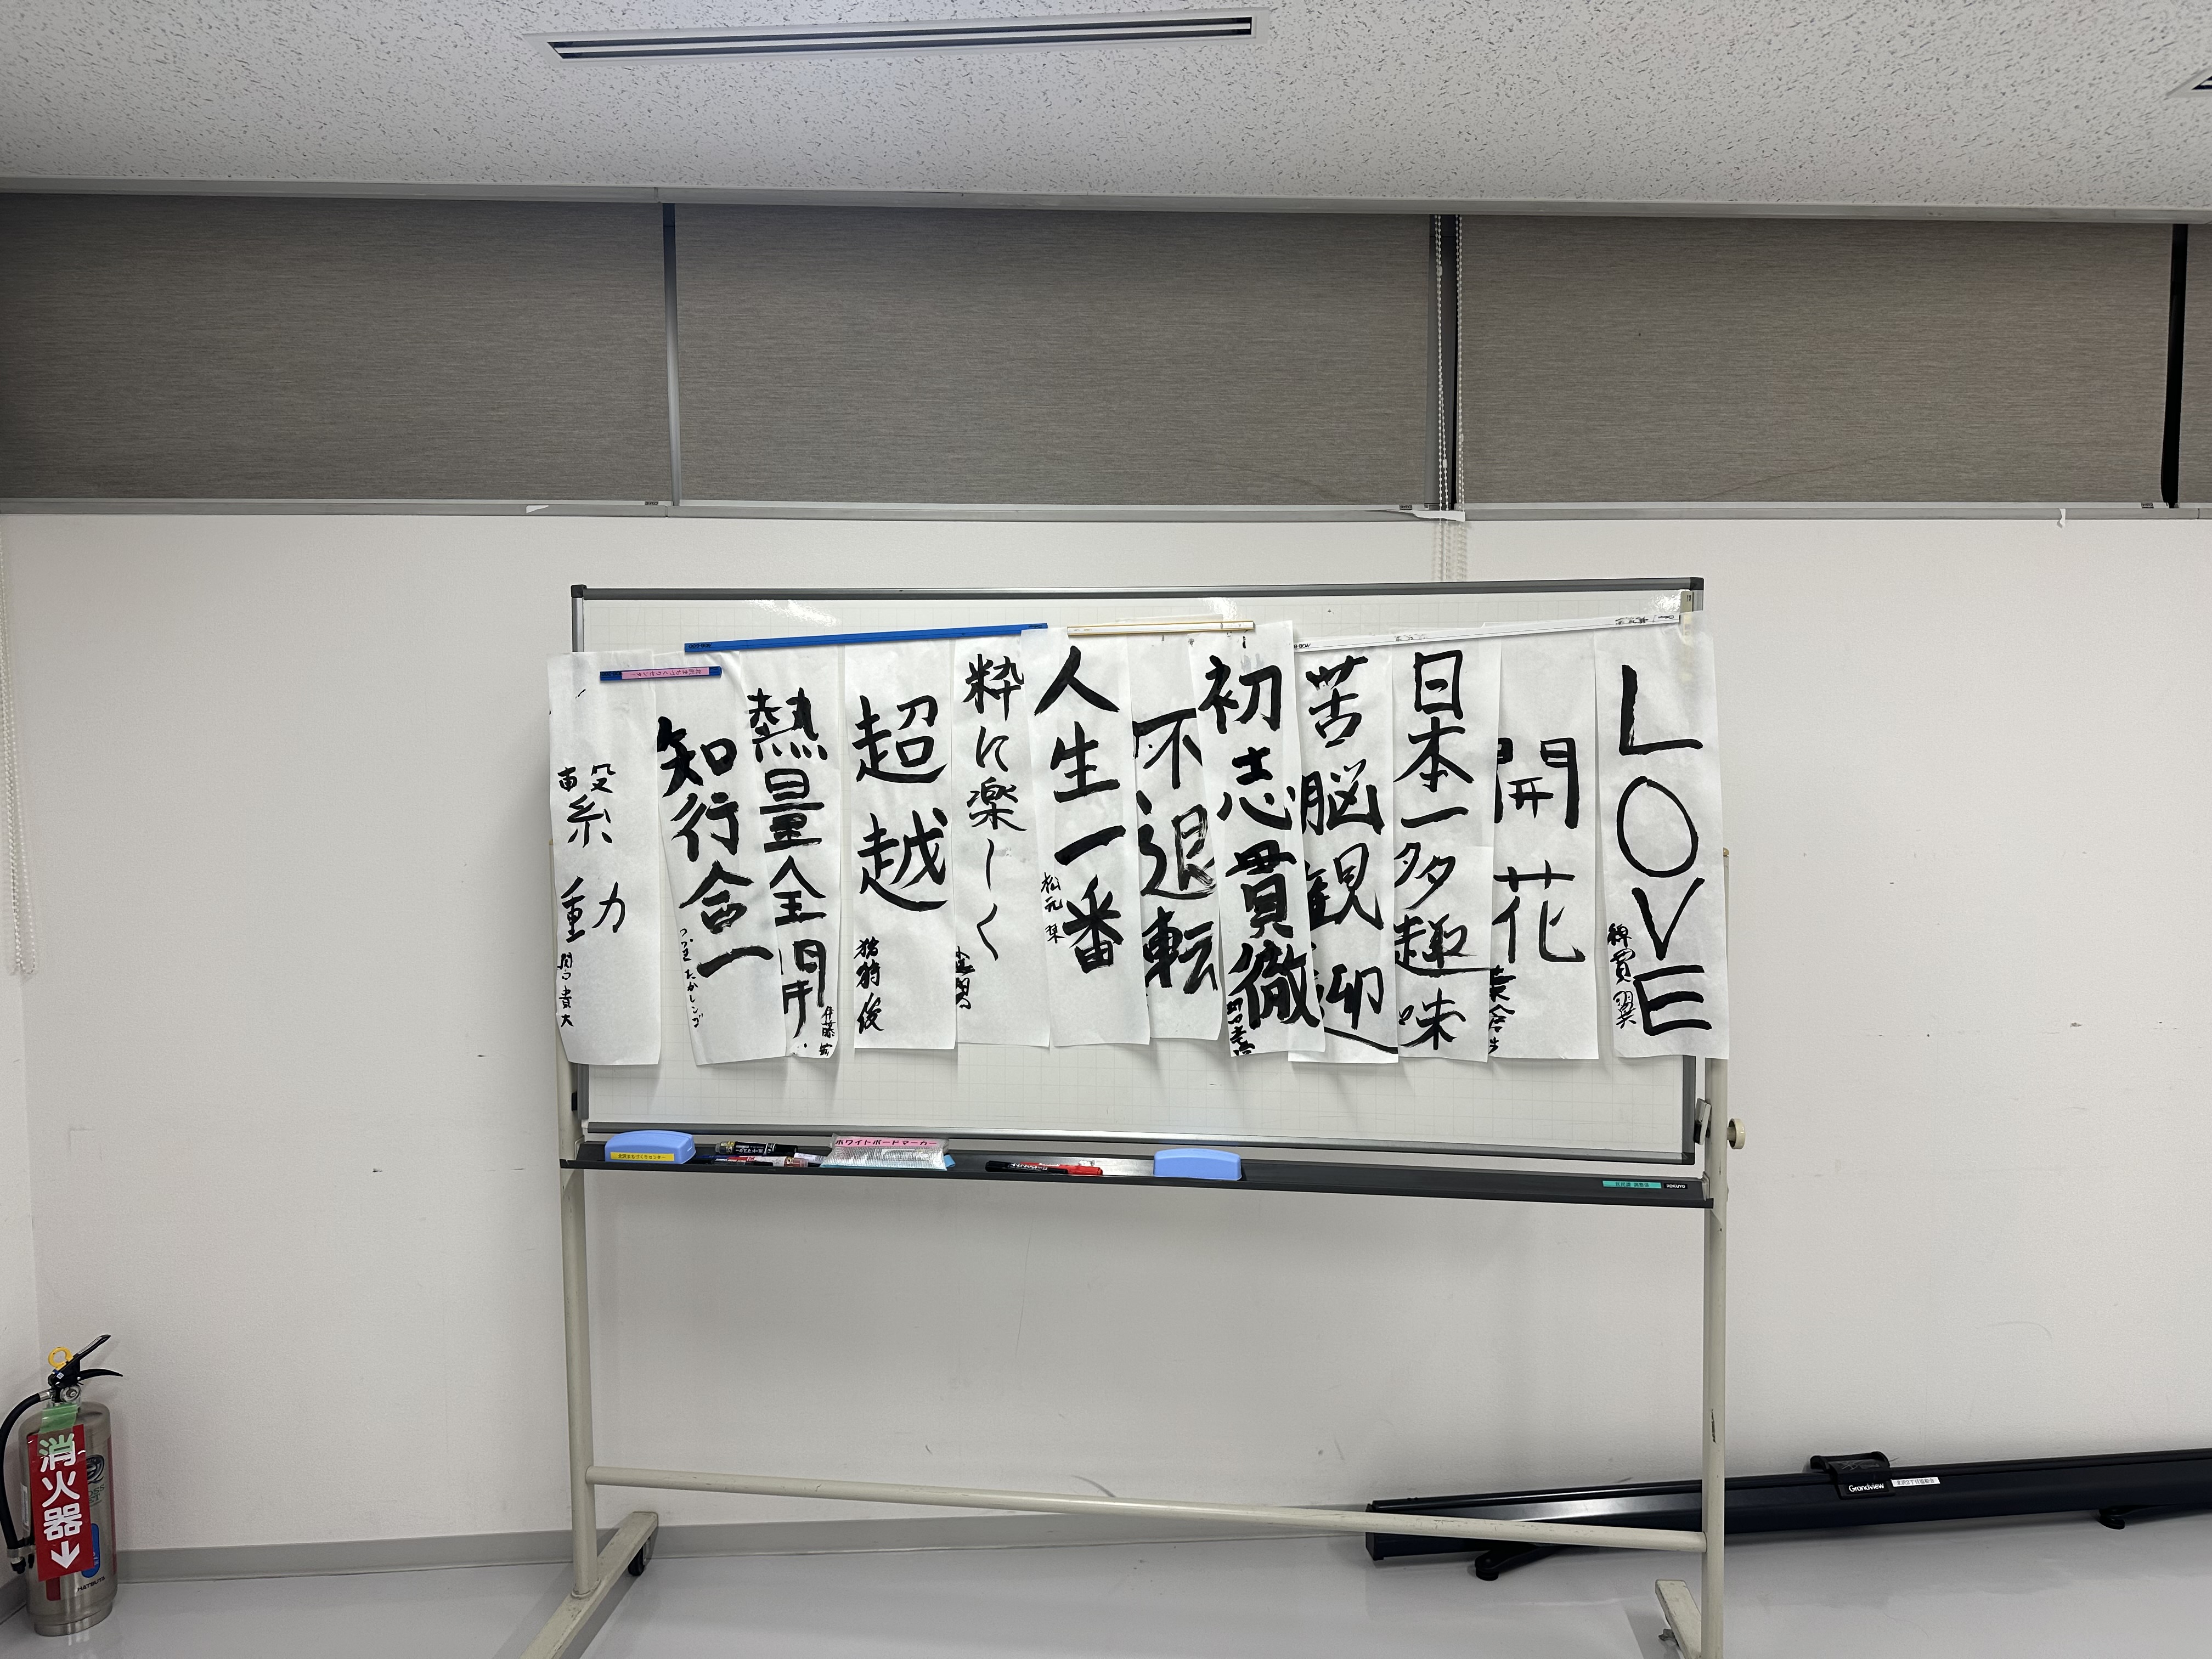 LOVE
綿貫翼
開花
日本一多趣味
苦脳観迎
初志貫徹
不退転
人生一番
松元 栞
粋に楽しく
超越
猪狩俊
熱量全開
伊藤 宏
知行合一
つづきたかしンゴ
繋動
関口貴大
ホワイトボードマーカー
北沢まちづくりセンター
KOKUYO
消火器
Grandview